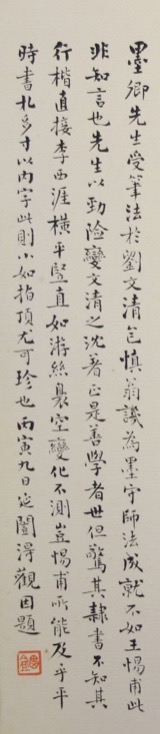 墨卿先生受筆法於劉文清包慎翁譏為墨守師法成就不如王惕甫此
非知言也先生以勁險變文清之沈著正是善學者世但驚其隸書不知其
行楷直接李西涯橫平豎直如游絲裊空變化不測豈惕甫所能及乎平
時書札多寸以內字此則小如指頂尤可珍也丙寅九日延闓得觀因題